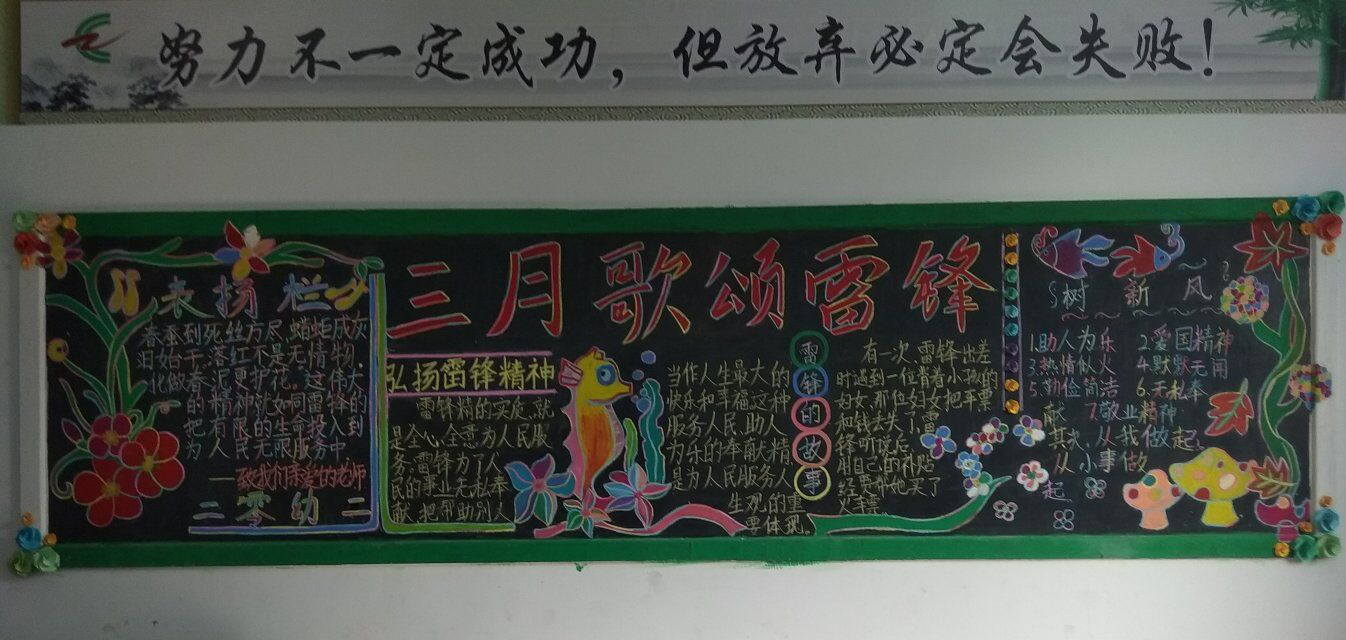 努力不一定成功，但放弃必定会失败！
三月歌颂雷锋
表扬栏
春蚕到死丝方尽，蜡炬成灰
泪始干 落红不是无情物，
化做春泥更护花。这伟大
的精神就如同雷锋的
把有限的生命投入到
为人民无限服务中
——致我们亲爱的老师
二零幼二
弘扬雷锋精神
雷锋精的实质，就
是全心全意为人民服
务。雷锋为了人
民的事业无私奉
献，把帮助别人
当作人生最大的
快乐和幸福这种
服务人民、助人
为乐的奉献精
是为人民服务人
生观的重
要体现。
雷锋的故事
有一次，雷锋出差
时遇到一位背着小孩的
妇女，那位妇女把车票
和钱丢失了，雷
锋听说后，
用自己的补贴
给她买了
火车票
树新风
1.助人为乐 2.爱国精神
3.热情似火 4.默默无闻
5.勤俭简洁 6.无私奉
献 7.敬业精神
其次，从我做起；
从小事做
起